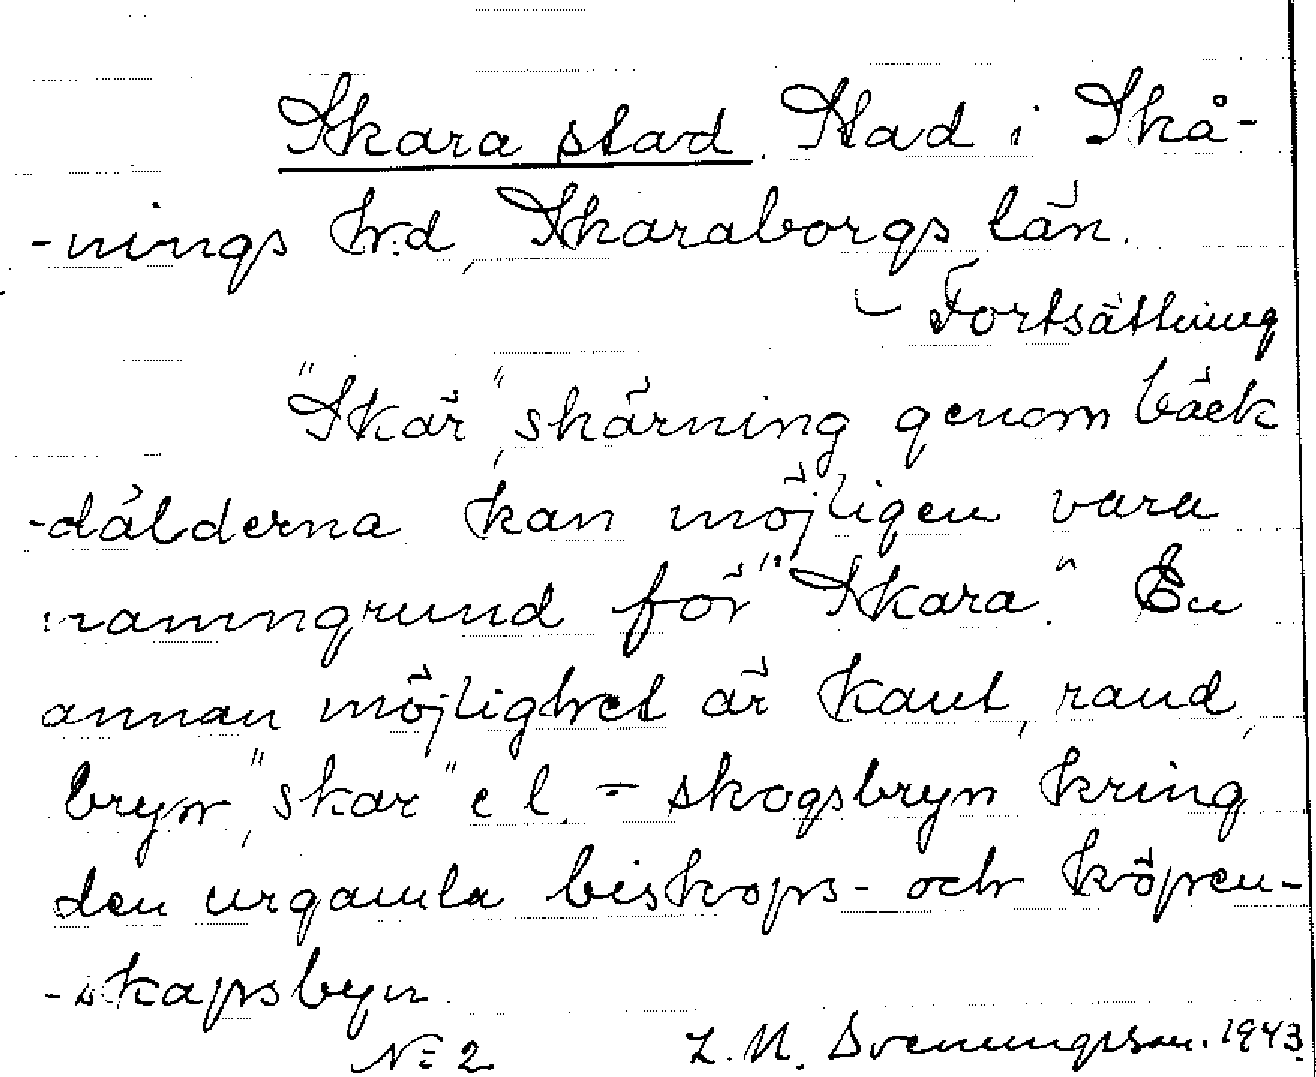 Skara stad. Stad i Skå-
-nings h:d, Skaraborgs län.
- Fortsättning
"Skär", skärning genom bäck
-dälderna kan möjligen vara
namngrund för "Skara". En
annan möjlighet är kant, rand,
bryn, "skar" e l. - skogsbryn kring
den urgamla biskops- och köpen-
-skapsbyn.
№ 2 L. M. Svenungsson. 1943.